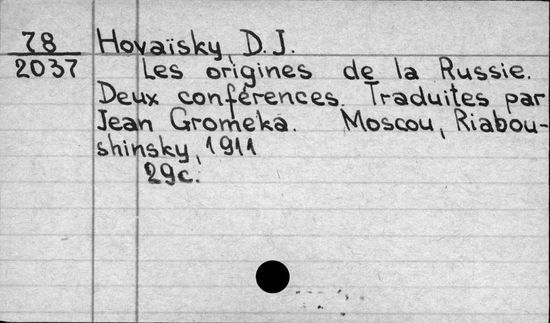 78 Hovaïsky, D. J.
2037 Les origines de la Russie.
Deux conférences. Traduites par
Jean Gromeka. Moscou, Riabou-
shinsky, 1911
29c.